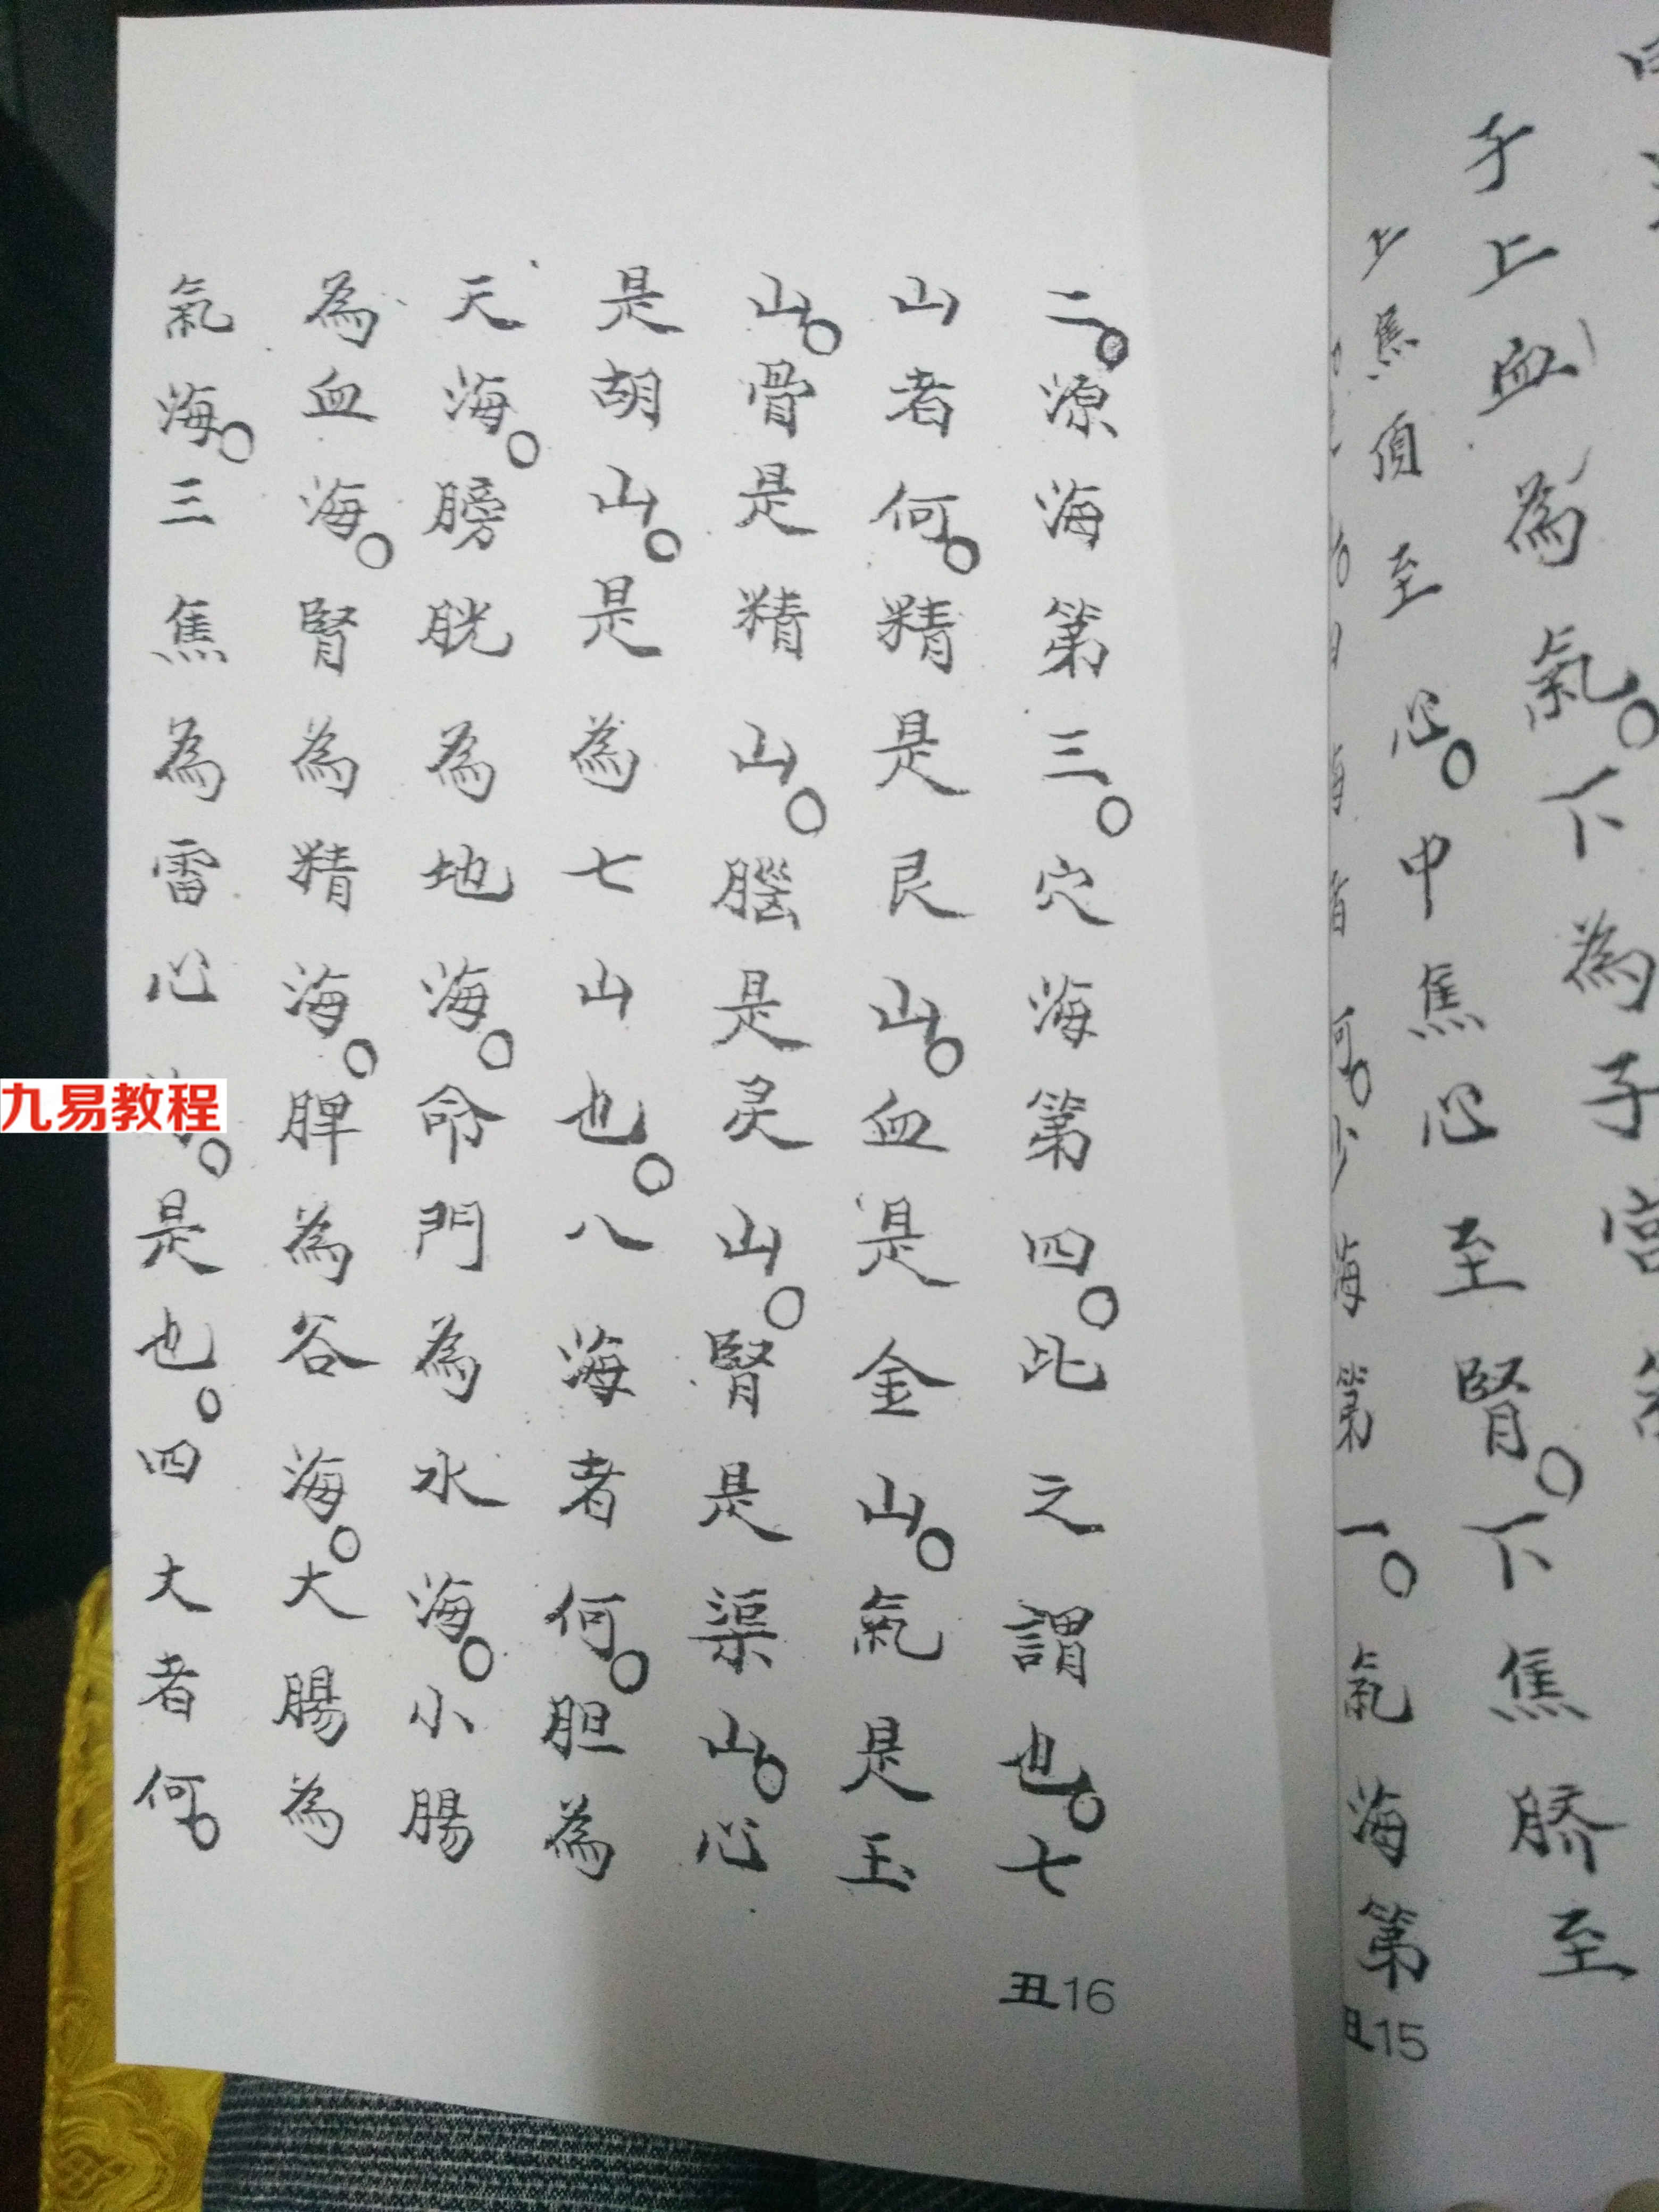 子上血為氣。下為子宮
上焦頂至心。中焦心至腎。下焦脐至
海第一。氣海第
丑15
二。源海第三。穴海第四。比之謂也。七
山者何。精是艮山。血是金山。氣是玉
山。骨是精山。腦是灵山。腎是渠山。心
是胡山。是為七山也。八海者何。胆為
天海。膀胱為地海。命門為水海。小腸
為血海。腎為精海。脾為谷海。大腸為
氣海。三焦為雷心。是也。四大者何。
丑16
九易教程